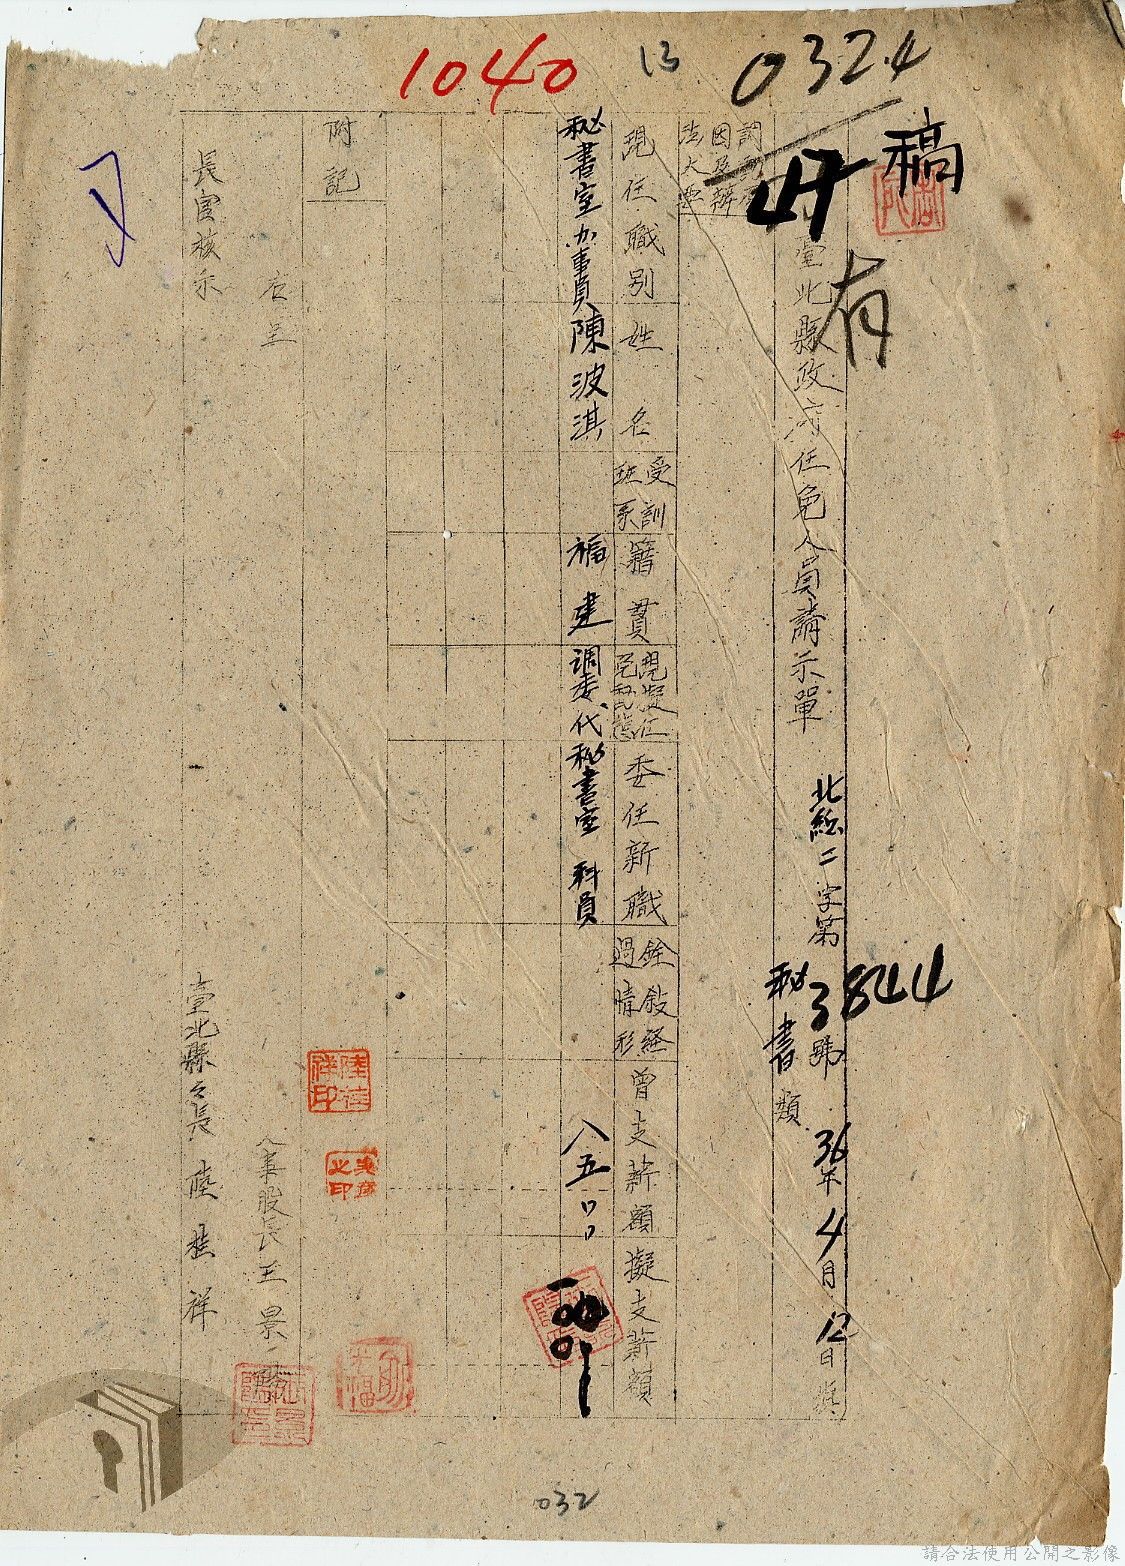 1040
13
0324
稿
有
臺北縣政府任免人員請示單
北總二字第3844號
36年4月12日
秘書類
因及辦法大要
現任職別
姓名
受訓班系
籍貫
現擬任
委任新職
銓敘經過情形
曾支薪額
擬支薪額
秘書室办事員
陳波淇
福建
調委代
秘書室 科員
八五
附記
右呈
長官核示
人事股長王景
臺北縣々長 陸桂祥
陸桂祥印
032
請合法使用公開之影像